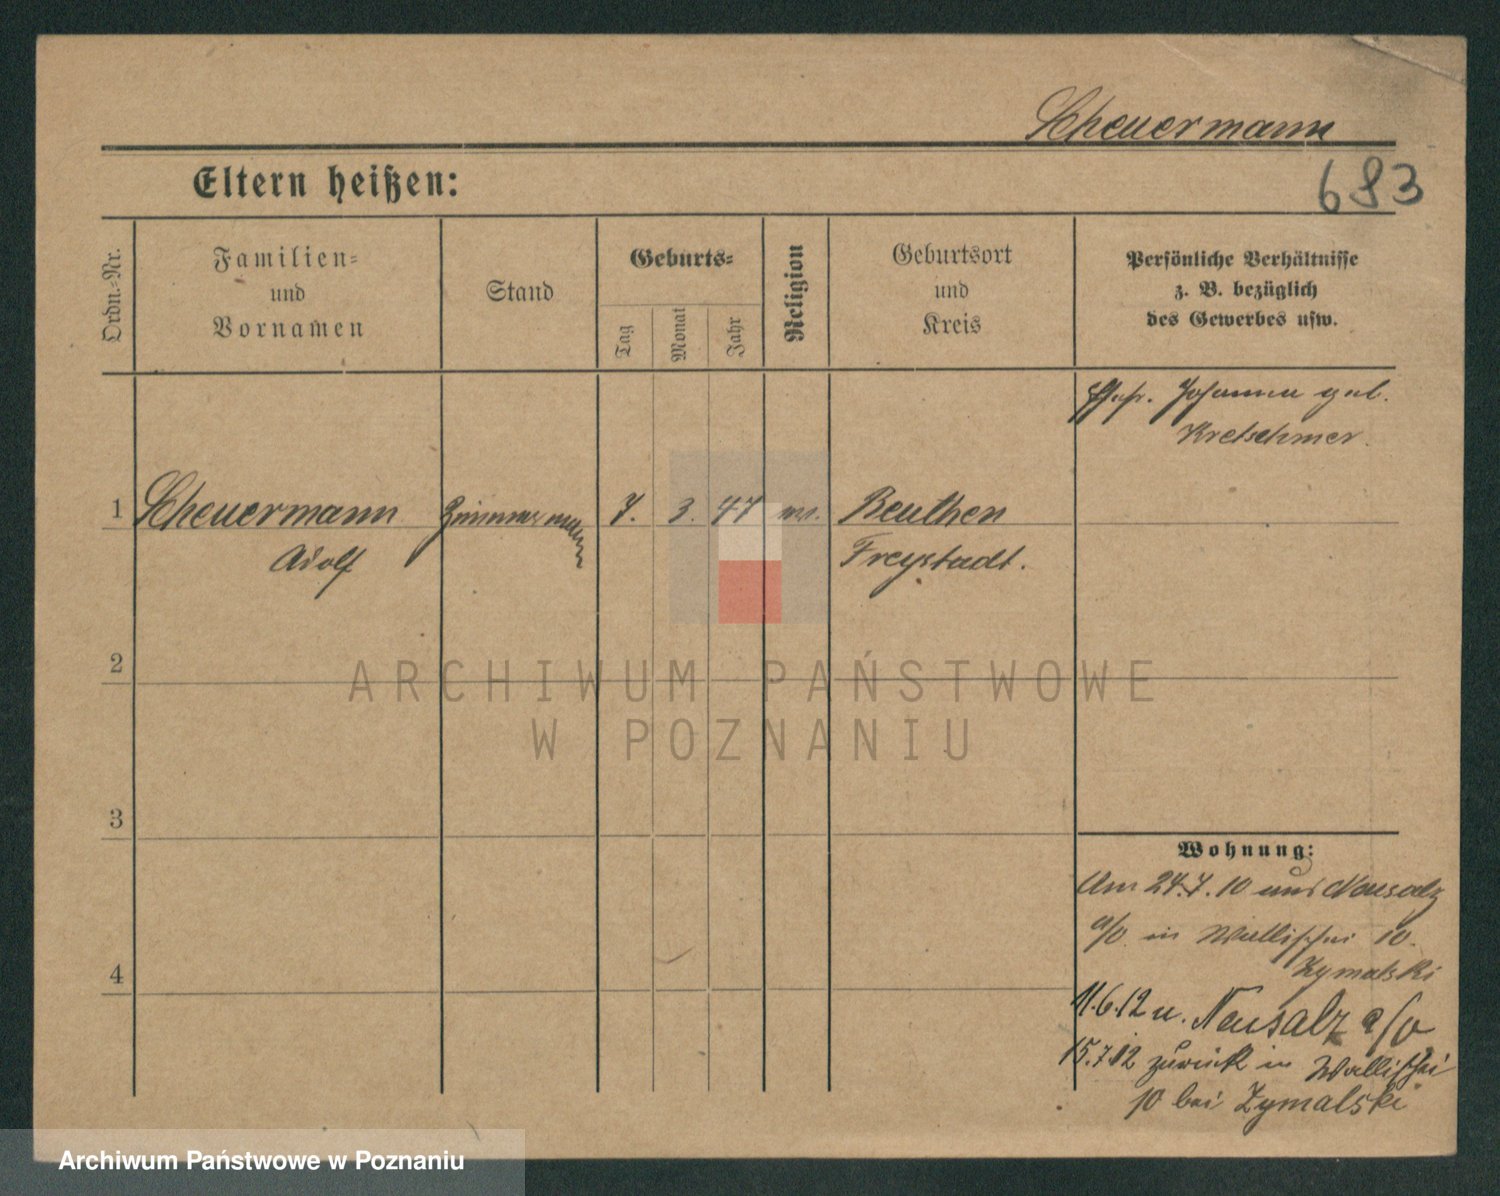 Scheuermann
683
Eltern heißen:
Ordn.-Nr.
Familien-
und
Vornamen
Stand
Geburts-
Tag
Monat
Jahr
Religion
Geburtsort
und
Kreis
Persönliche Verhältnisse
z. B. bezüglich
des Gewerbes usw.
Johanna geb.
Kretschmer.
1 Scheuermann Zimmermann 7. 3. 47 Beuthen
Adolf Freystadt.
2
ARCHIWUM PAŃSTWOWE
W POZNANIU
3
Wohnung:
Am 24.7.10 aus Neusalz
a/O. in Wallischei 10.
Zymalski
4
11.6.12 n. Neusalz a/O
15.7.12 zurück in Wallischei
10 bei Zymalski
Archiwum Państwowe w Poznaniu